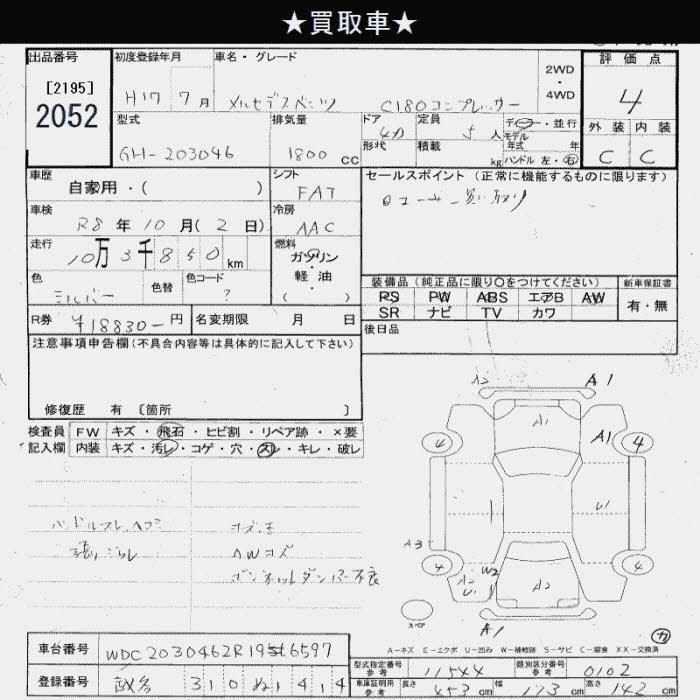 ★買取車★
出品番号
[2195]
2052
初度登録年月
H17 7月
車名・グレード
メルセデスベンツ C180コンプレッサー
2WD
・
4WD
評価点
4
外装 内装
C C
型式
GH-203046
排気量
1800cc
ドア 4ドア
形状
定員 5人
積載 kg
ディーラー・並行
モデル
年式 年
ハンドル 左・右
車歴
自家用・( )
シフト
FAT
セールスポイント (正常に機能するものに限ります)
車検
R8年10月(2日)
冷房
AAC
走行
10万3千850km
燃料
ガソリン
・
軽・油
( )
色
シルバー
色替
色コード
?
装備品 (純正品に限り○をつけてください)
PS PW ABS エアB AW
SR ナビ TV カワ
新車保証書
有・無
R券 ¥18830-円
名変期限 月 日
後日品
注意事項申告欄(不具合内容等は具体的に記入して下さい)
修復歴 有 [箇所 ]
検査員 FW キズ・飛石・ヒビ割・リペア跡・×要
記入欄 内装 キズ・汚レ・コゲ・穴・スレ・キレ・破レ
ハンドルスレ
AWキズ
ボンネットダンパー不良
A2 A1
A1
A1
4 4
U1
A3
4 4
W2
A2
U1
A2
A1
スペア
カ
A-キズ E-エクボ U-凹み W-補修跡 S-サビ C-腐食 XX-交換済
車台番号 WDC2030462R1956597
登録番号
310 ぬ 1414
型式指定番号
参考
11544
類別区分番号
参考
0102
車庫証明用
参考
長さ 453cm 幅 173cm 高さ 142cm